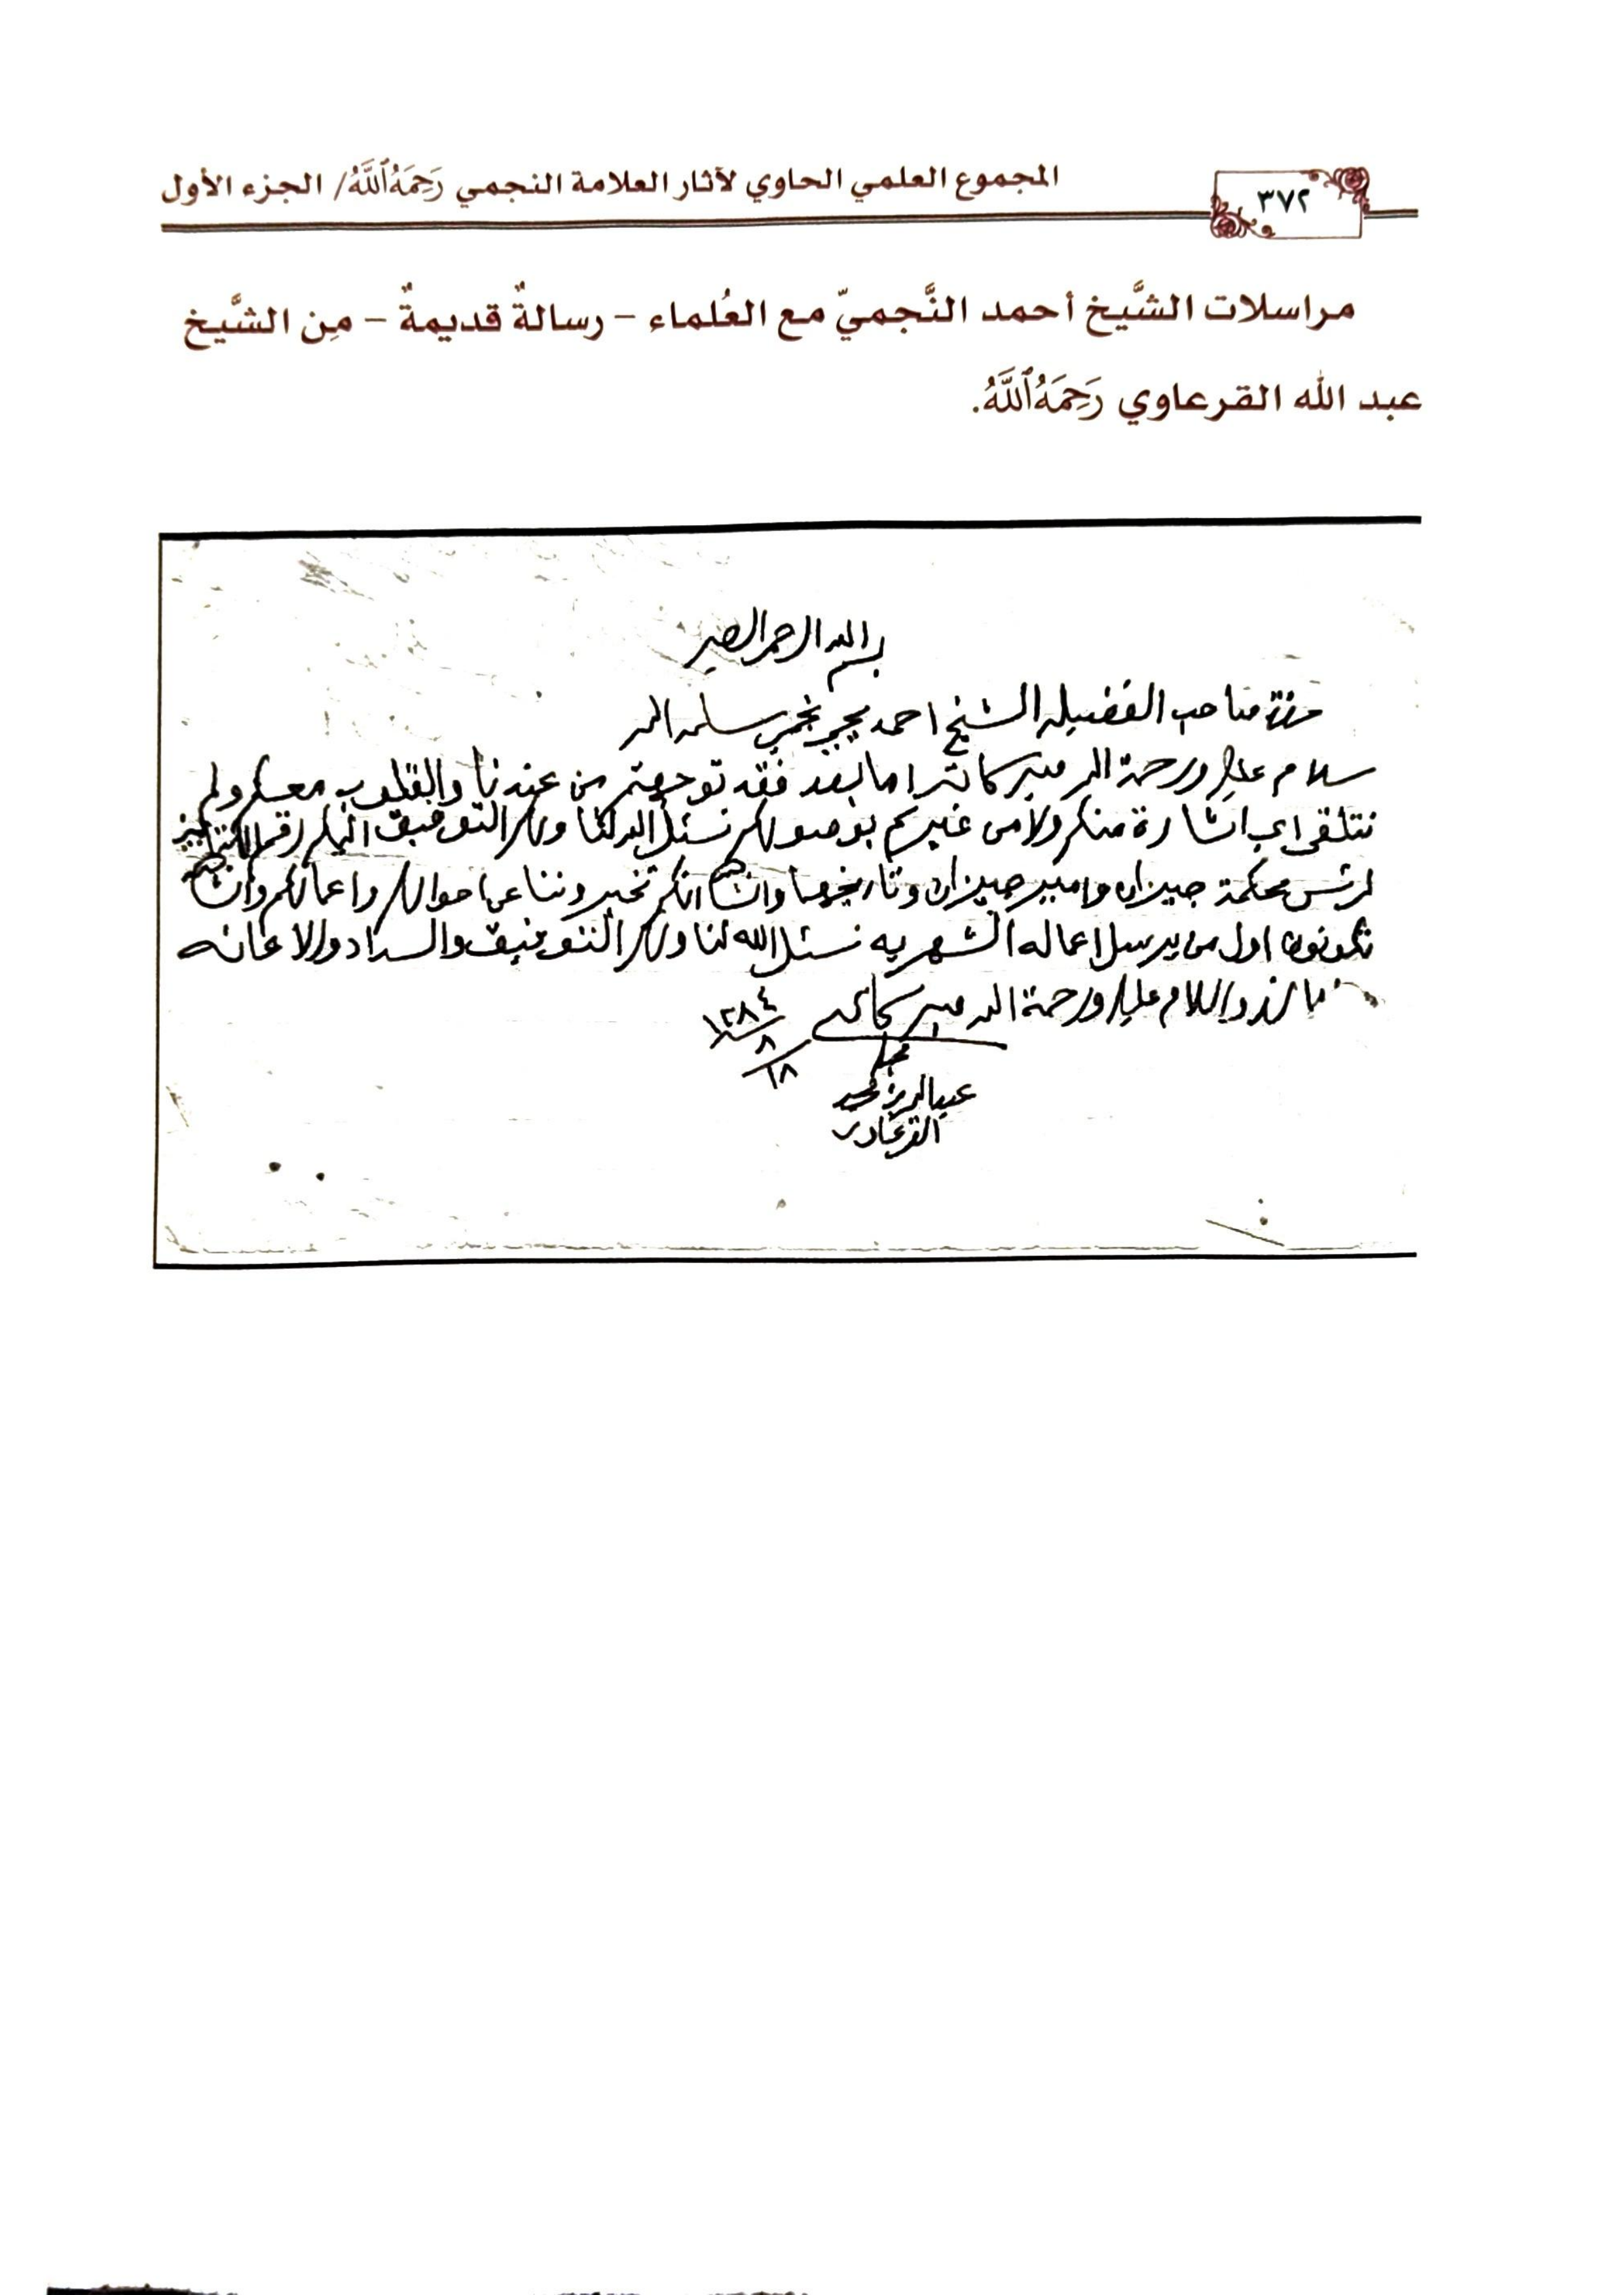 المجموع العلمي الحاوي لآثار العلامة النجمي رَحِمَهُ ٱللَّهُ/ الجزء الأول
٣٧٢
مراسلات الشَّيخ أحمد النَّجميّ مع العُلماء - رسالةٌ قديمةٌ - مِن الشَّيخ
عبد الله القرعاوي رَحِمَهُ ٱللَّهُ.
بسم الله الرحمن الرحيم
صاحب الفضيله الشيخ احمد يحيى نجمي سلمه الله
سلام عليكم ورحمة الله وبركاته اما بعد فقد توجهتم من عندنا والقلوب معكم ولم
نتلقى اي اشارة منكم ولا من غيركم بوصولكم نسئل الله لنا ولكم التوفيق اليكم رقم
لرئس محكمة جيزان وامير جيزان وتاريخهما وانشاالله انكم تخبروننا عن احوالكم واعمالكم وانشاالله
تكونون اول من يرسل اعماله الشهريه نسئل الله لنا ولكم التوفيق والسداد والاعانه
والسلام عليكم ورحمة الله وبركاته
١٣٨٤/٨/١٨
عبدالله بن محمد
القرعاوي